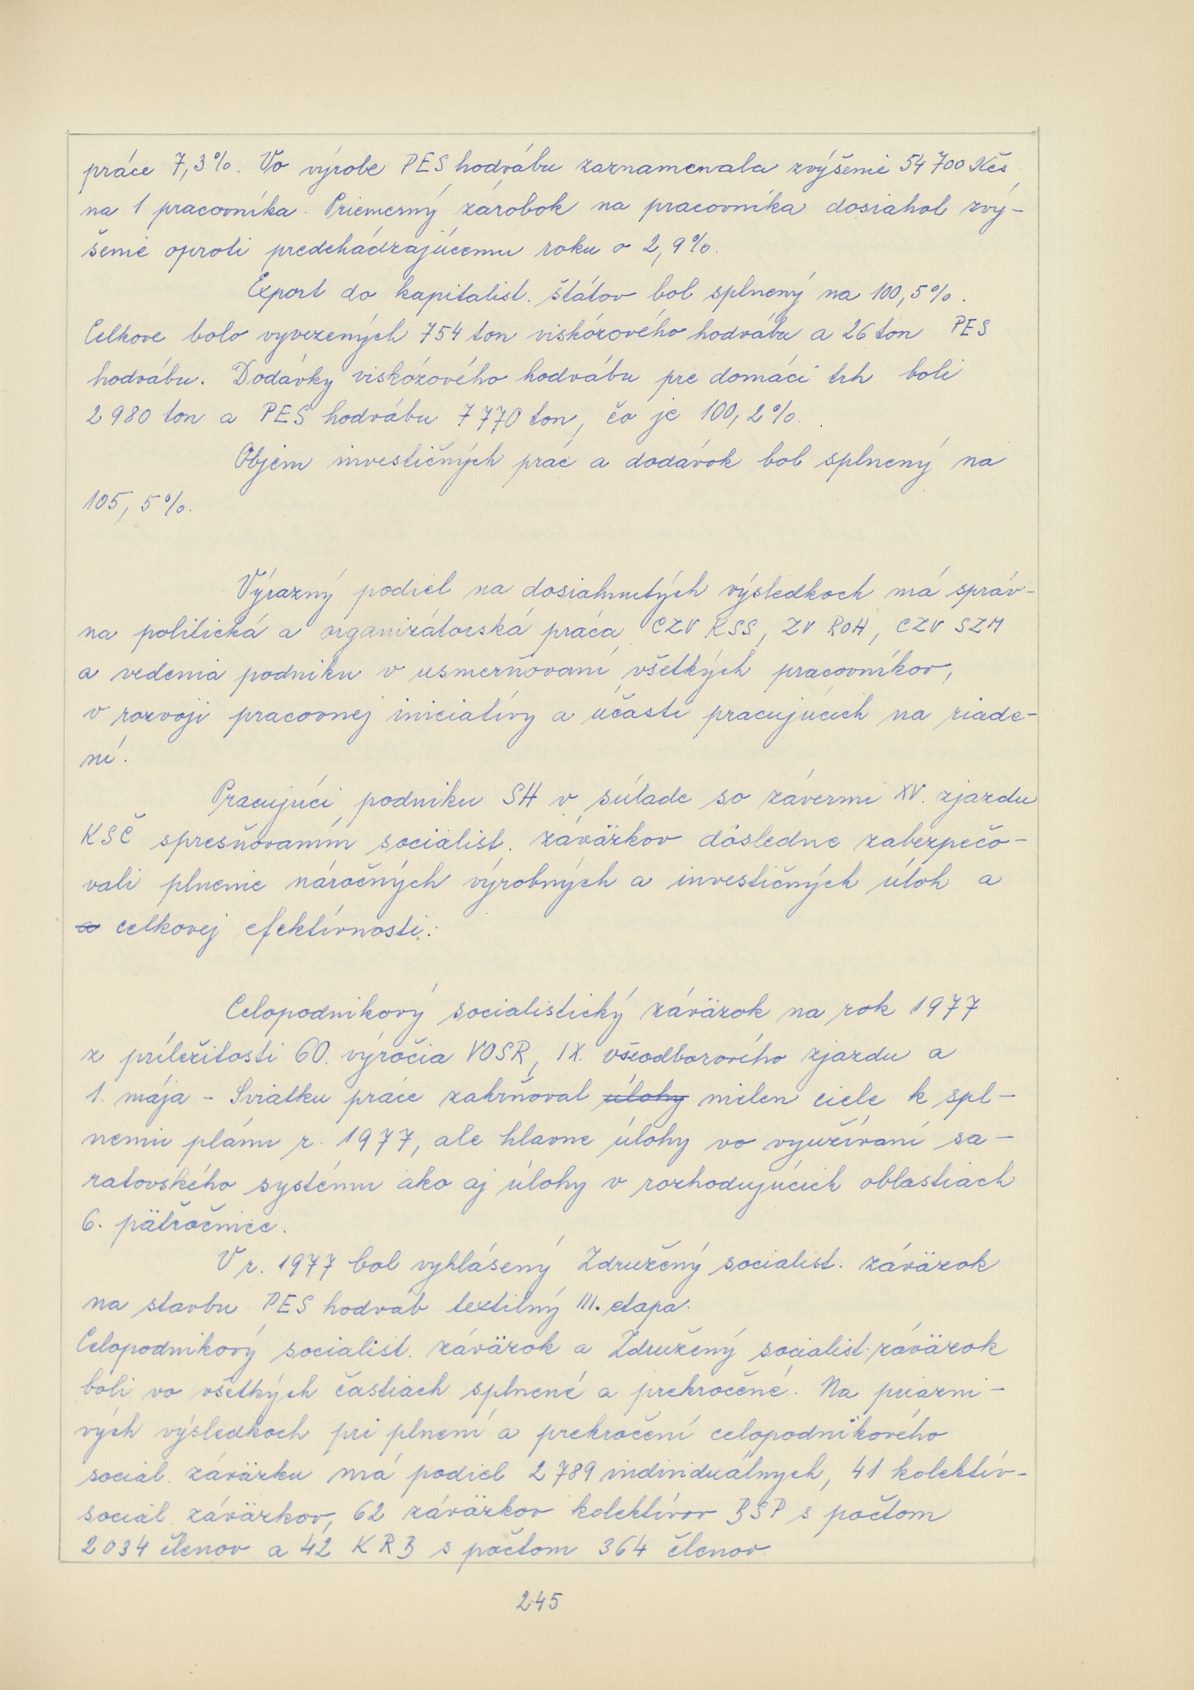 práce 7,3%. Vo výrobe PES hodvábu zaznamenala zvýšenie 54 700 Kčs
na 1 pracovníka. Priemerný zárobok na pracovníka dosiahol zvý-
šenie oproti predchádzajúcemu roku o 2,9%.
Export do kapitalist. štátov bol splnený na 100,5%.
Celkove bolo vyvezených 754 ton viskózového hodvábu a 26 ton PES
hodvábu. Dodávky viskózového hodvábu pre domáci trh boli
2 980 ton a PES hodvábu 7 770 ton, čo je 100,2%.
Objem investičných prác a dodávok bol splnený na
105,5%.
Výrazný podiel na dosiahnutých výsledkoch má správ-
na politická a organizátorská práca CZV KSS, ZV ROH, CZV SZM
a vedenia podniku v usmerňovaní všetkých pracovníkov,
v rozvoji pracovnej iniciatívy a účasti pracujúcich na riade-
ní.
Pracujúci podniku SH v súlade so závermi XV. zjazdu
KSČ spresňovaním socialist. záväzkov dôsledne zabezpečo-
vali plnenie náročných výrobných a investičných úloh a
a celkovej efektívnosti.
Celopodnikový socialistický záväzok na rok 1977
z príležitosti 60. výročia VOSR, IX. všeodborového zjazdu a
1. mája - Sviatku práce zahrňoval úlohy nielen ciele k spl-
neniu plánu r. 1977, ale hlavne úlohy vo využívaní sa-
ratovského systému ako aj úlohy v rozhodujúcich oblastiach
6. päťročnice.
V r. 1977 bol vyhlásený Združený socialist. záväzok
na stavbu PES hodváb textilný III. etapa.
Celopodnikový socialist. záväzok a Združený socialist. záväzok
boli vo všetkých častiach splnené a prekročené. Na priazni-
vých výsledkoch pri plnení a prekročení celopodnikového
sociál. záväzku má podiel 2 789 individuálnych, 41 kolektív-
sociál. záväzkov, 62 záväzkov kolektívov BSP s počtom
2 034 členov a 42 KRB s počtom 364 členov.
245